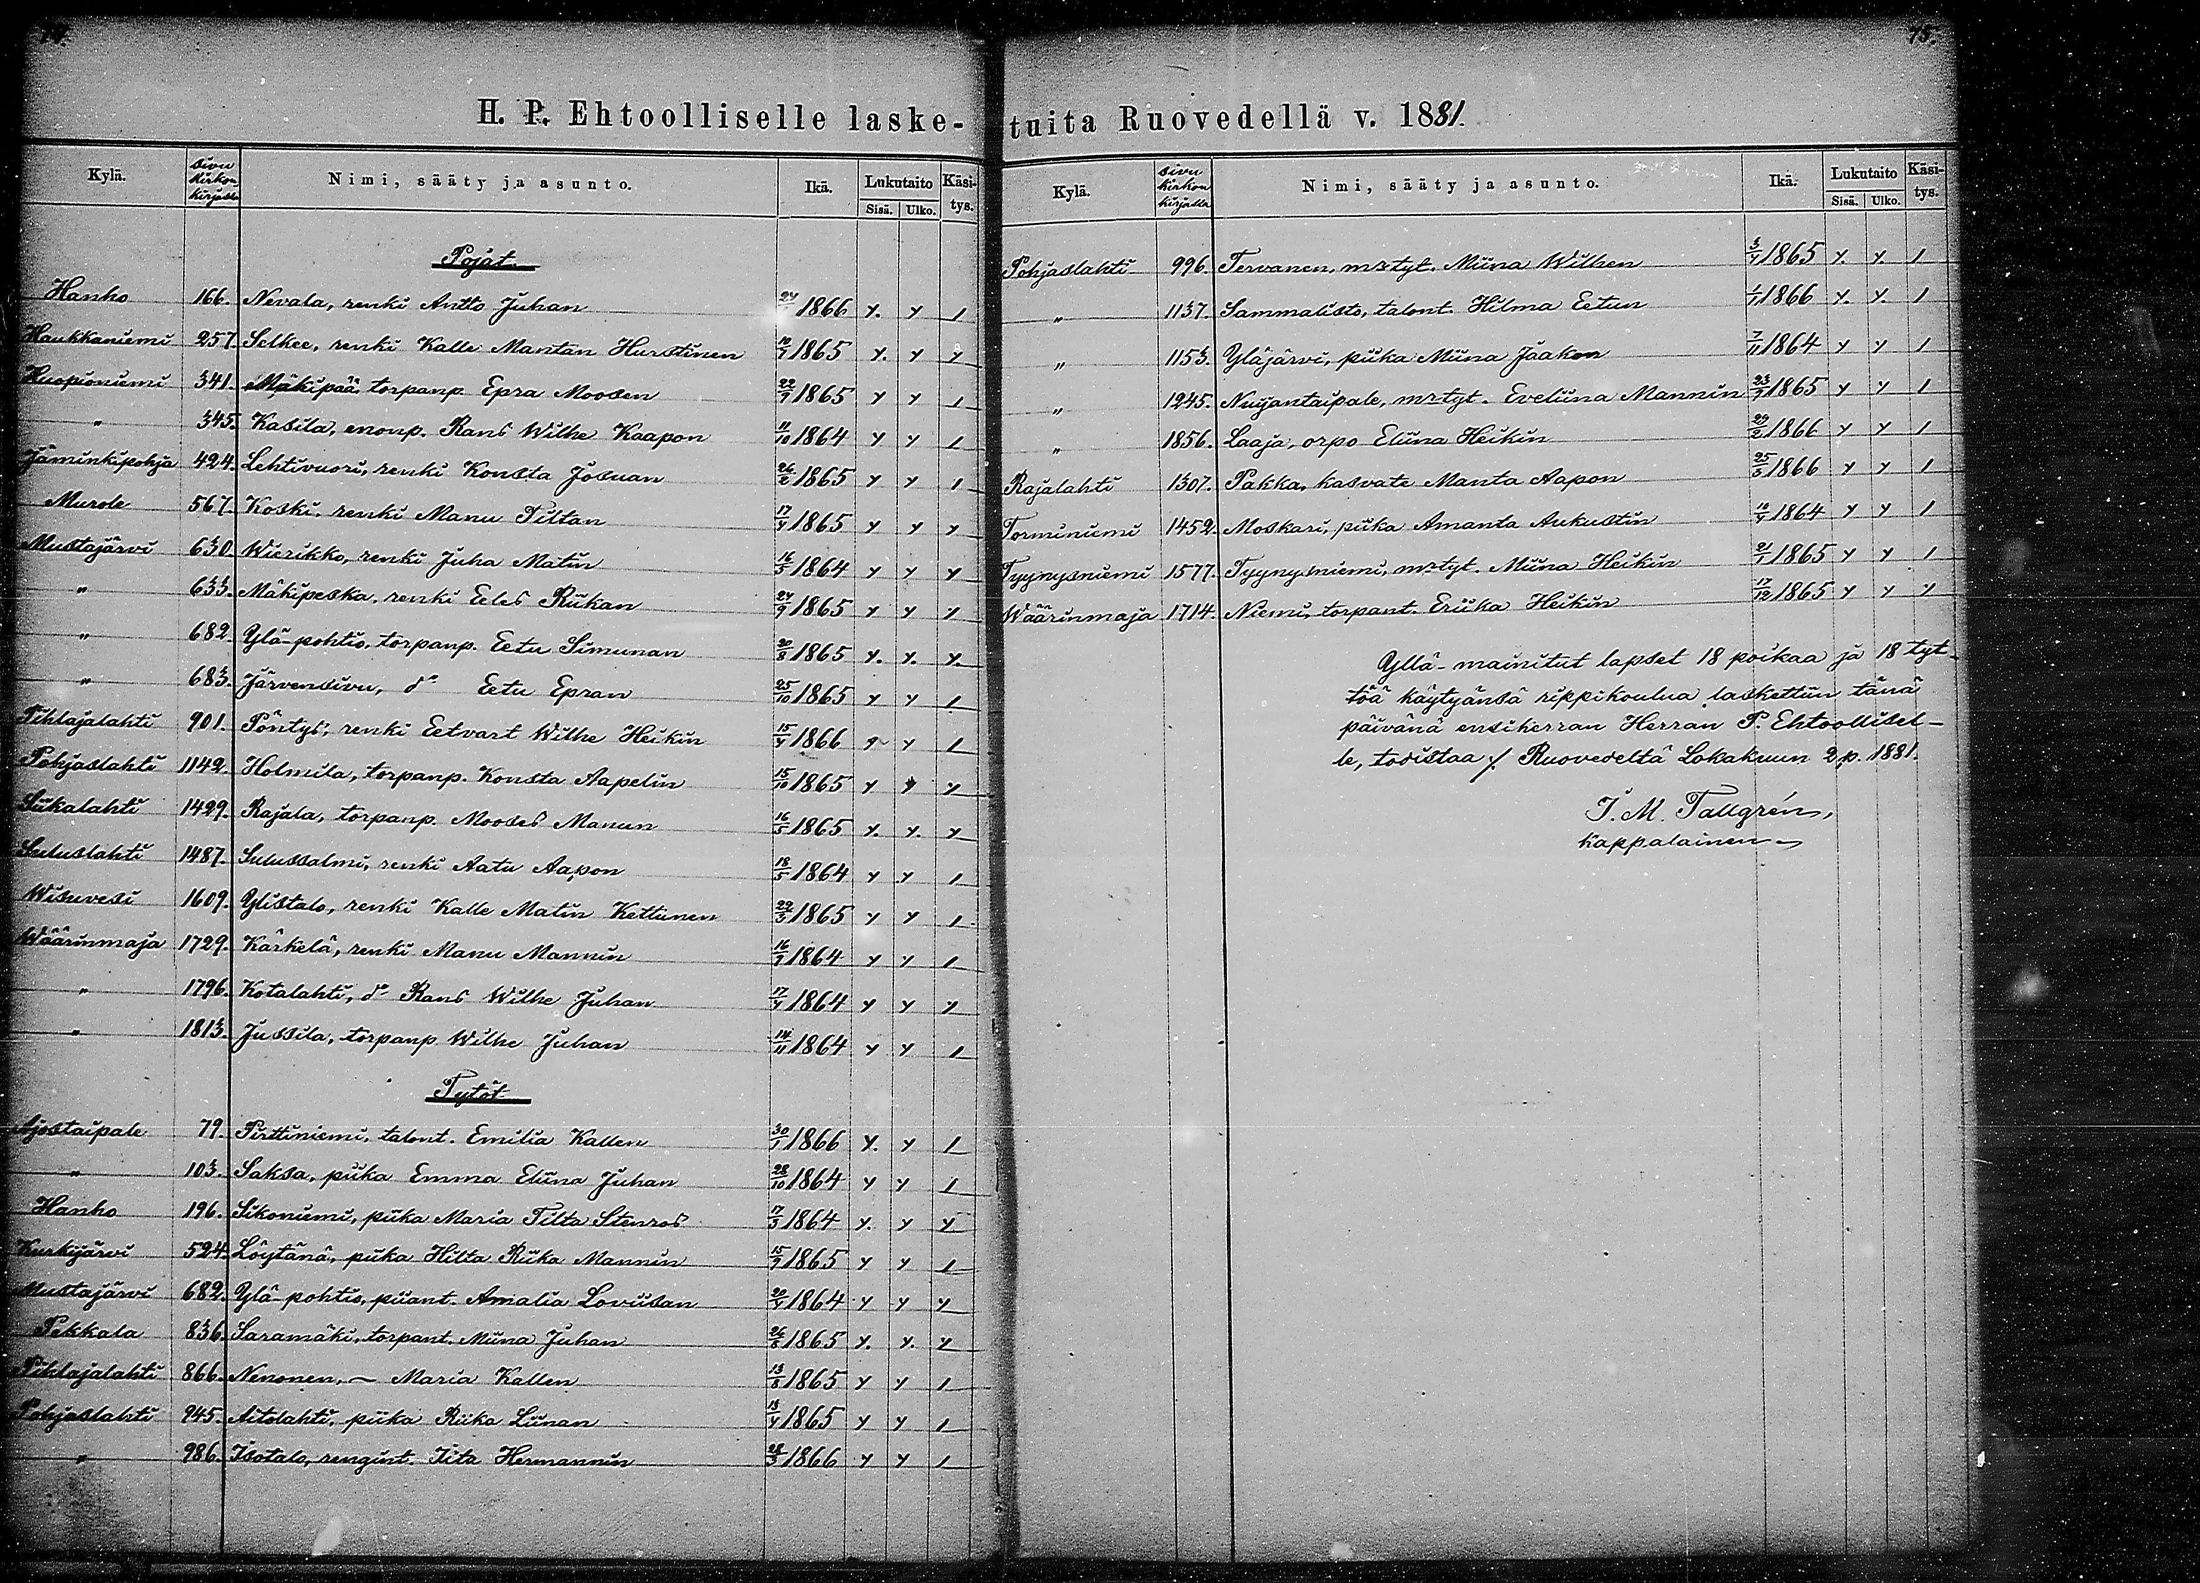 74.
H. P. Ehtoolliselle laske-
Kylä. | sivu kirkonkirjassa | Nimi, sääty ja asunto. | Ikä. | Lukutaito Sisä. | Ulko. | Käsitys.
Pojat.
Hanho 166. Nevala, renki Antto Juhan 1866 y. y 1
Haukkaniemi 257. Selkee, renki Kalle Mantan Hurstinen 1865 y. y y
Huopioniemi 341. Mäkipää, torpanp. Epra Moosen 22/9 1865 y y 1
" 345. Kasila, enonp. Rans Wilhe Kaapon 11/10 1864 y y 1
Jäminkipohja 424. Lehtivuori, renki Konsta Josuan 26/2 1865 y y 1
Murole 567. Koski, renki Manu Tiltan 17/4 1865 y y y
Mustajärvi 630. Wierikko, renki Juha Matin 16/5 1864 y y y
" 633. Mäkipeska, renki Eeles Riikan 24/9 1865 y y 1
" 682. Ylä-pohtio, torpanp. Eetu Simunan 20/8 1865 y. y. y.
" 683. Järvensivu, d:o Eetu Epran 25/10 1865 y y 1
Pihlajalahti 901. Pöntys, renki Eetvart Wilhe Heikin 15/4 1866 y 1
Pohjaslahti 1142. Holmila, torpanp. Konsta Aapelin 15/10 1865 y y y
Siikalahti 1429. Rajala, torpanp. Mooses Manun 16/5 1865 y. y. y
Suluslahti 1487. Sulussalmi, renki Aatu Aapon 18/5 1864 y y 1
Wisuvesi 1609. Ylistalo, renki Kalle Matin Kettunen 22/3 1865 y y 1
Wäärinmaja 1729. Kärkelä, renki Manu Mannin 16/9 1864 y y 1
" 1796. Kotalahti, d:o Rans Wilhe Juhan 17/4 1864 y y y
" 1813. Jussila, torpanp. Wilhe Juhan 14/11 1864 y y 1
Tytöt
Ajostaipale 79. Pirttiniemi, talont. Emilia Kallen 30/1 1866 y. y 1
" 103. Saksa, piika Emma Eliina Juhan 28/10 1864 y y 1
Hanho 196. Sikoniemi, piika Maria Tilta Stenros 17/3 1864 y. y y
Kurkijärvi 524. Löytänä, piika Hilta Riika Mannin 15/9 1865 y y 1
Mustajärvi 682. Ylä-pohtio, piiant. Amalia Loviisan 20/4 1864 y y y
Pekkala 836. Saramäki, torpant. Miina Juhan 26/8 1865 y. y. y
Pihlajalahti 866. Nenonen, — Maria Kallen 13/8 1865 y y 1
Pohjaslahti 945. Aitolahti, piika Riika Liinan 13/4 1865 y y 1
" 986. Isotalo, rengint. Iita Hermannin 28/3 1866 y y 1
75.
tuita Ruovedellä v. 1881.
Kylä. | sivu kirkonkirjalla | Nimi, sääty ja asunto. | Ikä. | Lukutaito Sisä. | Ulko. | Käsitys.
Pohjaslahti 996. Tervanen, mrtyt. Miina Wilhen 3/4 1865 y. y. 1
" 1137. Sammalisto, talont. Hilma Eetun 1/1 1866 y. y. 1
" 1153. Yläjärvi, piika Miina Jaakon 7/11 1864 y y 1
" 1245. Nuijantaipale, mrtyt. Eveliina Mannin 23/9 1865 y y 1
" 1856. Laaja, orpo Eliina Heikin 29/2 1866 y y 1
Rajalahti 1307. Pakka, kasvate Manta Aapon 25/3 1866 y y 1
Torminiemi 1452. Moskari, piika Amanta Aukustin 10/4 1864 y y 1
Tyynysniemi 1577. Tyynysniemi, mrtyt. Miina Heikin 21/1 1865 y y 1
Wäärinmaja 1714. Niemi, torpant. Eriika Heikin 17/12 1865 y y y
Yllä-mainitut lapset 18 poikaa ja 18 tyt-
töä käytyänsä rippikoulua laskettiin tänä
päivänä ensikerran Herran P. Ehtoollisel-
le, todistaa ./. Ruovedeltä Lokakuun 2 p. 1881.
J. M. Tallgrén,
kappalainen